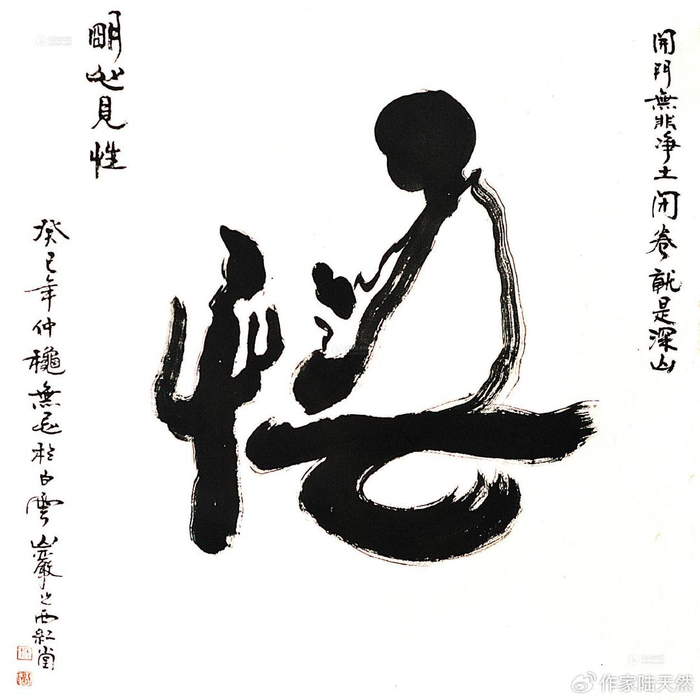 開門無非净土閉卷就是深山
悟
明心見性
癸巳年仲龝無求於白雲山巖之西紅堂
@作家陆天然